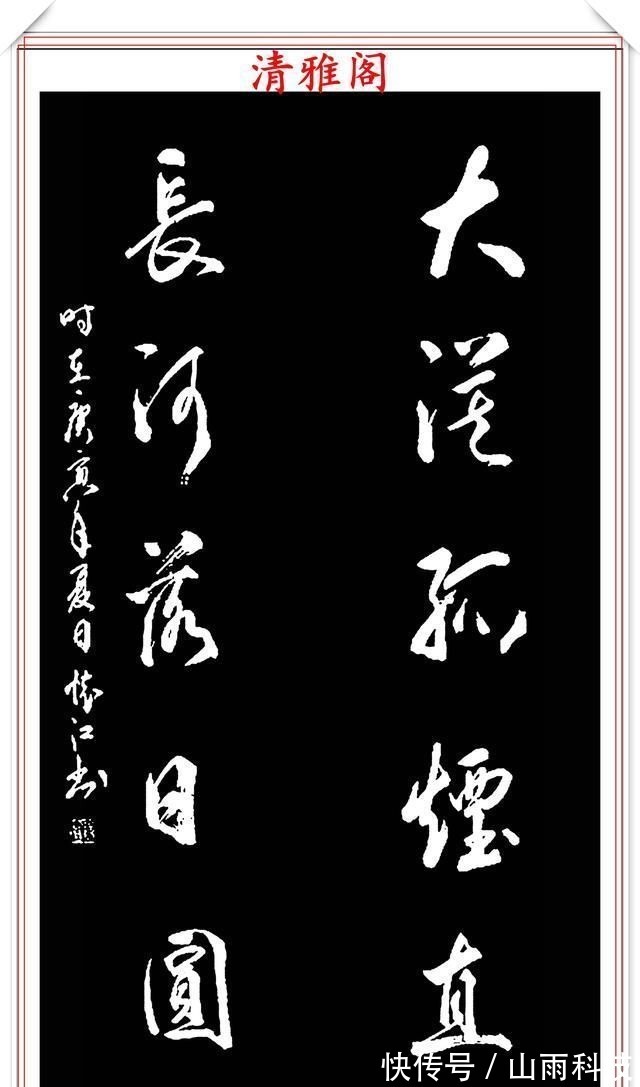 清雅阁
大漠孤煙直
長河落日圓
时在庚寅年夏日懷江书
快传号／山雨科技